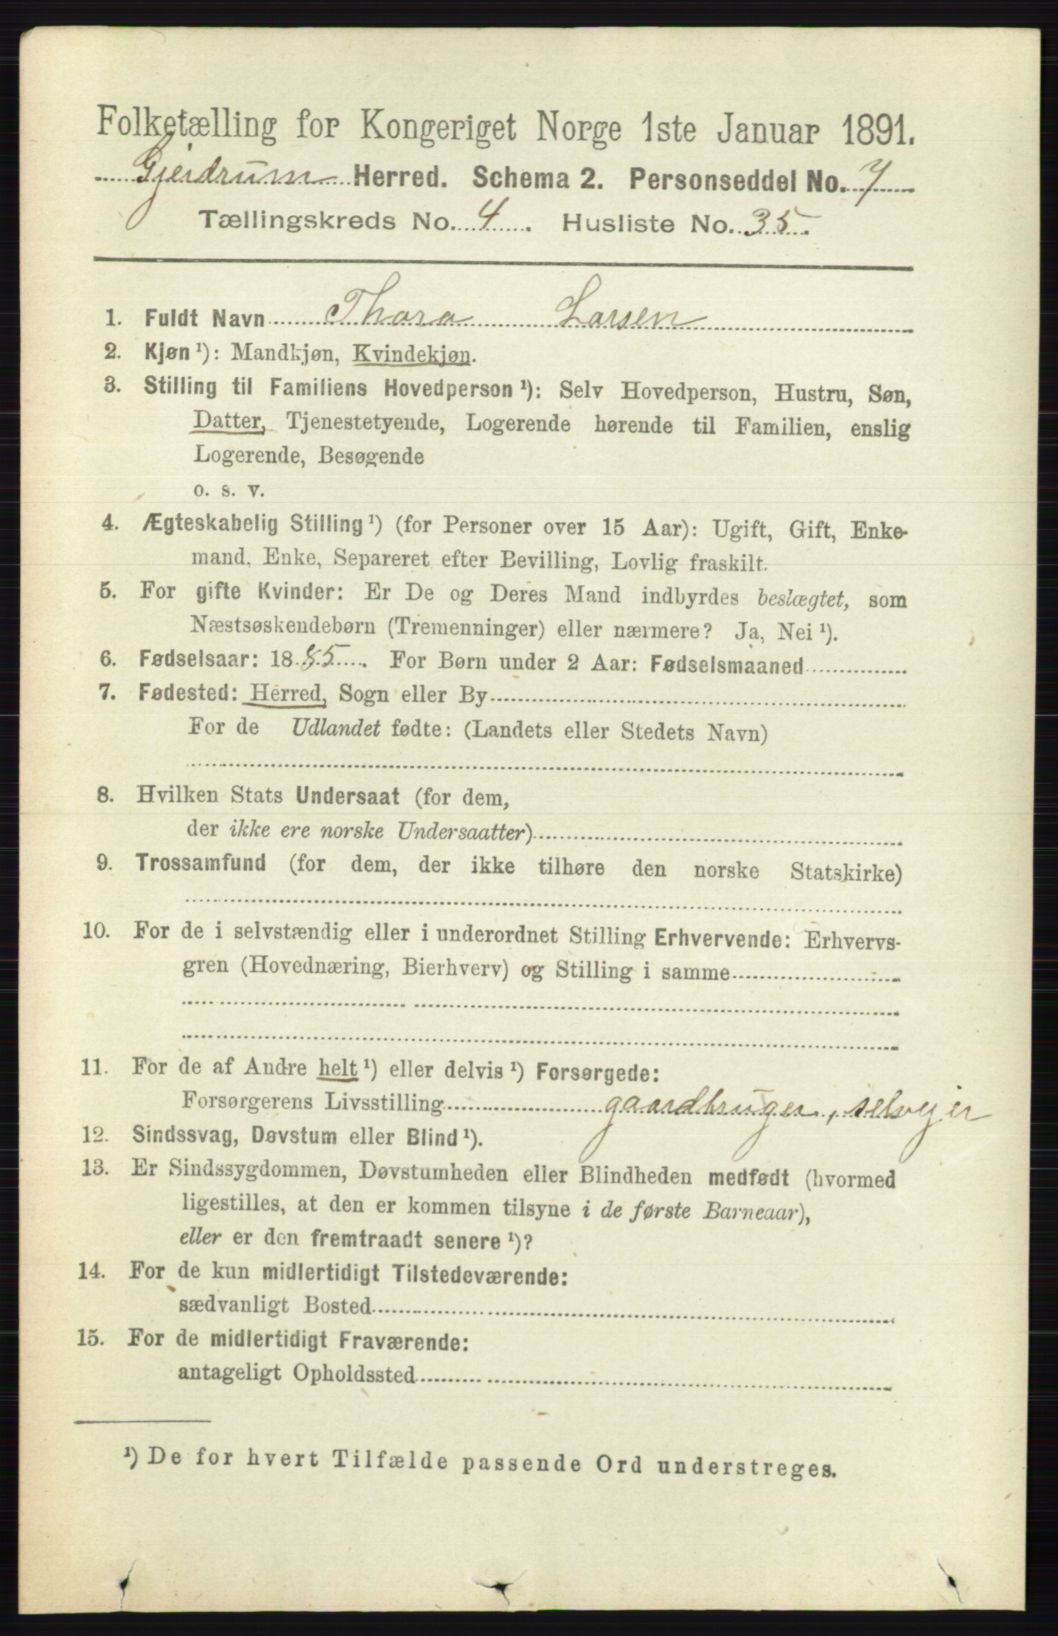 Folketælling for Kongeriget Norge 1ste Januar 1891.
Gjerdrum Herred. Schema 2. Personseddel No. 7
Tællingskreds No. 4. Husliste No. 35.
1. Fuldt Navn Thora Larsen
2. Kjøn ¹): Mandkjøn, Kvindekjøn.
3. Stilling til Familiens Hovedperson ¹): Selv Hovedperson, Hustru, Søn,
Datter, Tjenestetyende, Logerende hørende til Familien, enslig
Logerende, Besøgende
o. s. v.
4. Ægteskabelig Stilling ¹) (for Personer over 15 Aar): Ugift, Gift, Enke-
mand, Enke, Separeret efter Bevilling, Lovlig fraskilt.
5. For gifte Kvinder: Er De og Deres Mand indbyrdes beslægtet, som
Næstsøskendebørn (Tremenninger) eller nærmere? Ja, Nei ¹).
6. Fødselsaar: 1885. For Børn under 2 Aar: Fødselsmaaned
7. Fødested: Herred, Sogn eller By
For de Udlandet fødte: (Landets eller Stedets Navn)
8. Hvilken Stats Undersaat (for dem,
der ikke ere norske Undersaatter)
9. Trossamfund (for dem, der ikke tilhøre den norske Statskirke)
10. For de i selvstændig eller i underordnet Stilling Erhvervende: Erhvervs-
gren (Hovednæring, Bierhverv) og Stilling i samme
11. For de af Andre helt ¹) eller delvis ¹) Forsørgede:
Forsørgerens Livsstilling gaardbruger, selvejer
12. Sindssvag, Døvstum eller Blind ¹).
13. Er Sindssygdommen, Døvstumheden eller Blindheden medfødt (hvormed
ligestilles, at den er kommen tilsyne i de første Barneaar),
eller er den fremtraadt senere ¹)?
14. For de kun midlertidigt Tilstedeværende:
sædvanligt Bosted
15. For de midlertidigt Fraværende:
antageligt Opholdssted
¹) De for hvert Tilfælde passende Ord understreges.